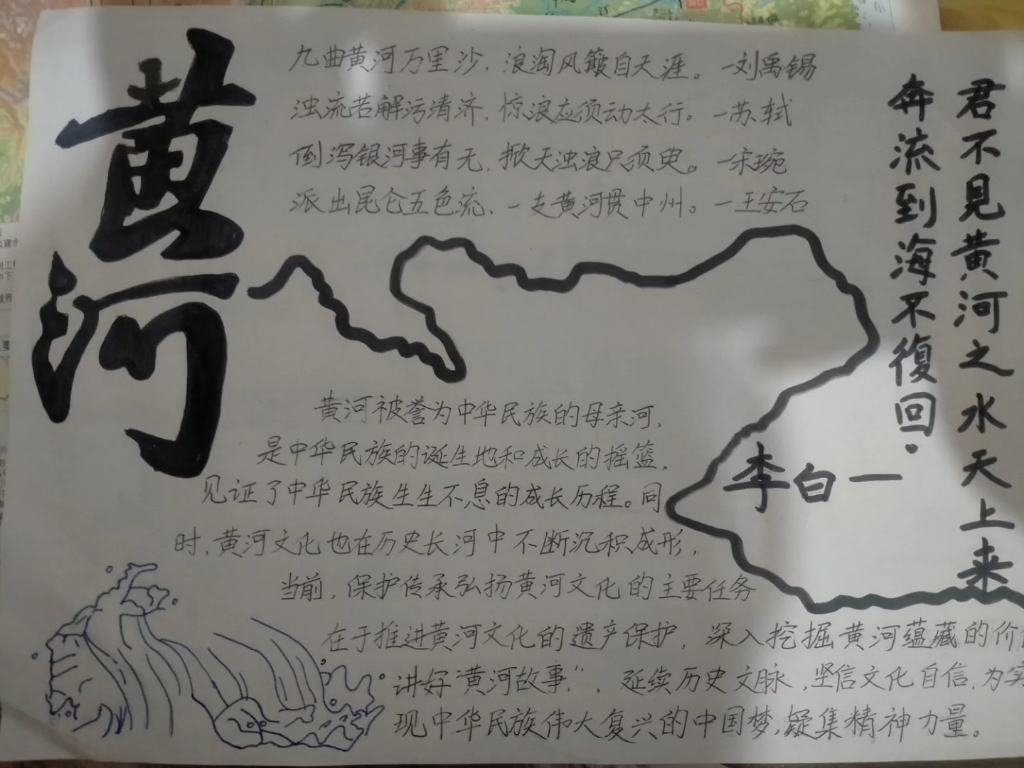 黄河
九曲黄河万里沙，浪淘风簸自天涯。一刘禹锡
浊流若解污清济，惊浪应须动太行。一苏轼
倒泻银河事有无，掀天浊浪只须臾。一宋琬
派出昆仑五色流，一支黄河贯中州。一王安石
君不見黄河之水天上来
奔流到海不復回。
李白一
黄河被誉为中华民族的母亲河，
是中华民族的诞生地和成长的摇篮，
见证了中华民族生生不息的成长历程。同
时，黄河文化也在历史长河中不断沉积成形，
当前，保护传承弘扬黄河文化的主要任务
在于推进黄河文化的遗产保护，深入挖掘黄河蕴藏的价
讲好"黄河故事"，延续历史文脉，坚信文化自信，为实
现中华民族伟大复兴的中国梦，凝集精神力量。